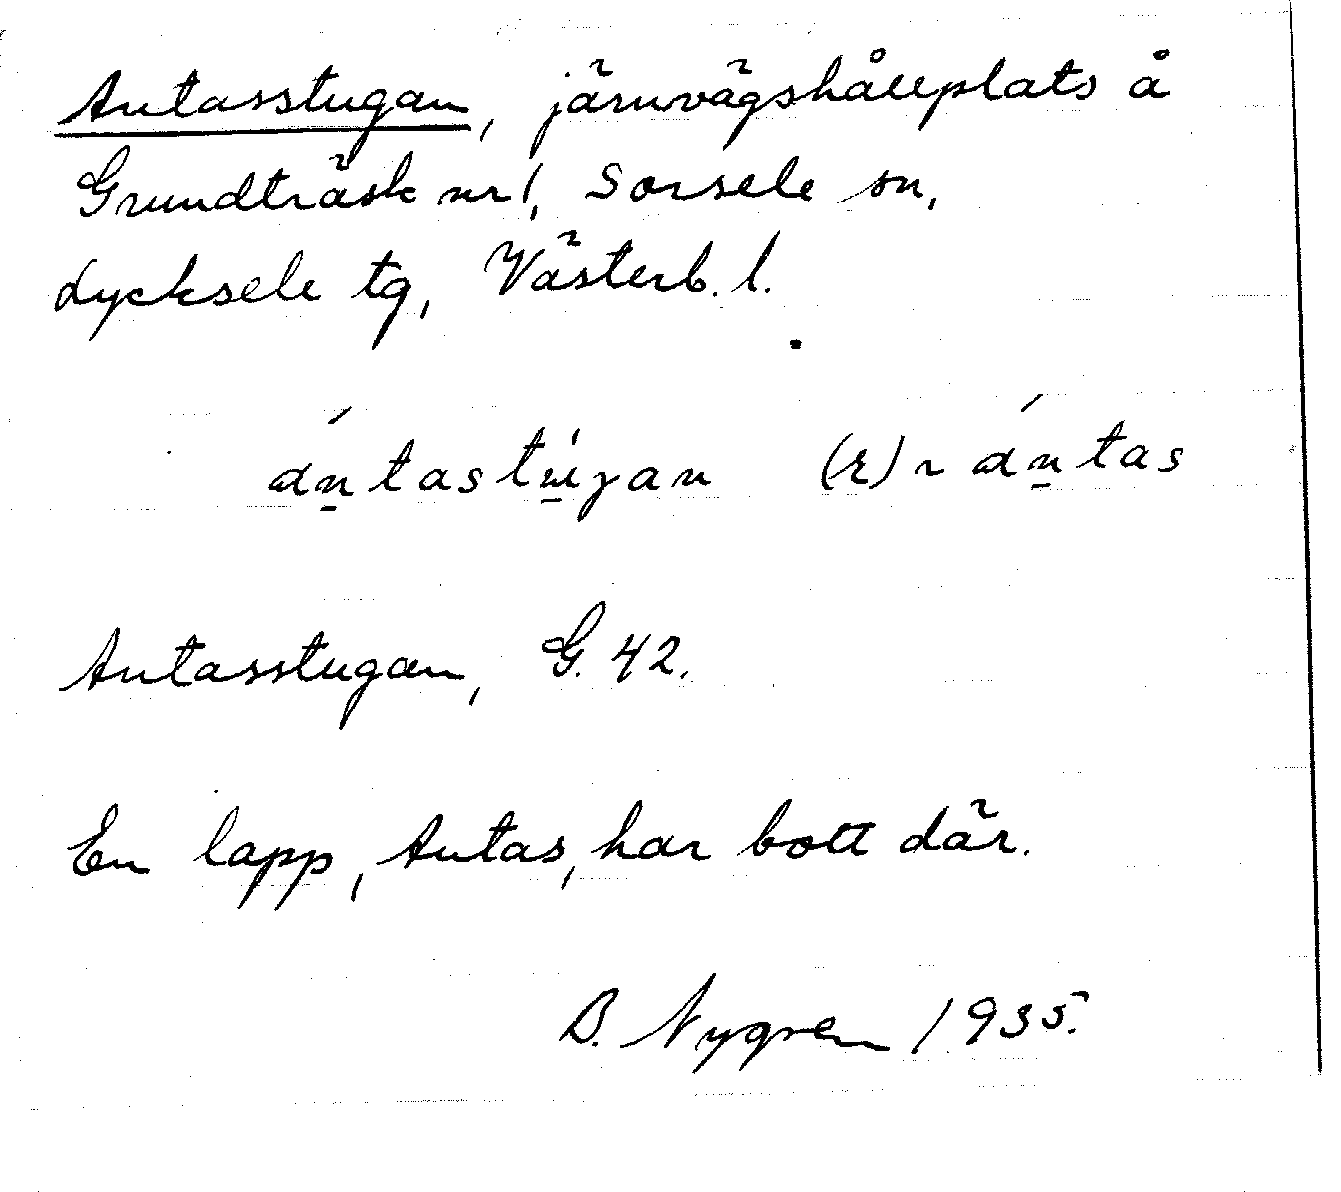 Antasstugan, järnvägshållplats å
Grundträsk nr 1, Sorsele sn,
Lycksele tg, Västerb. l.
ántastúgan (ɛ) ~ ántas
Antasstugan, G. 42.
En lapp, Antas, har bott där.
B. Nygren 1935.